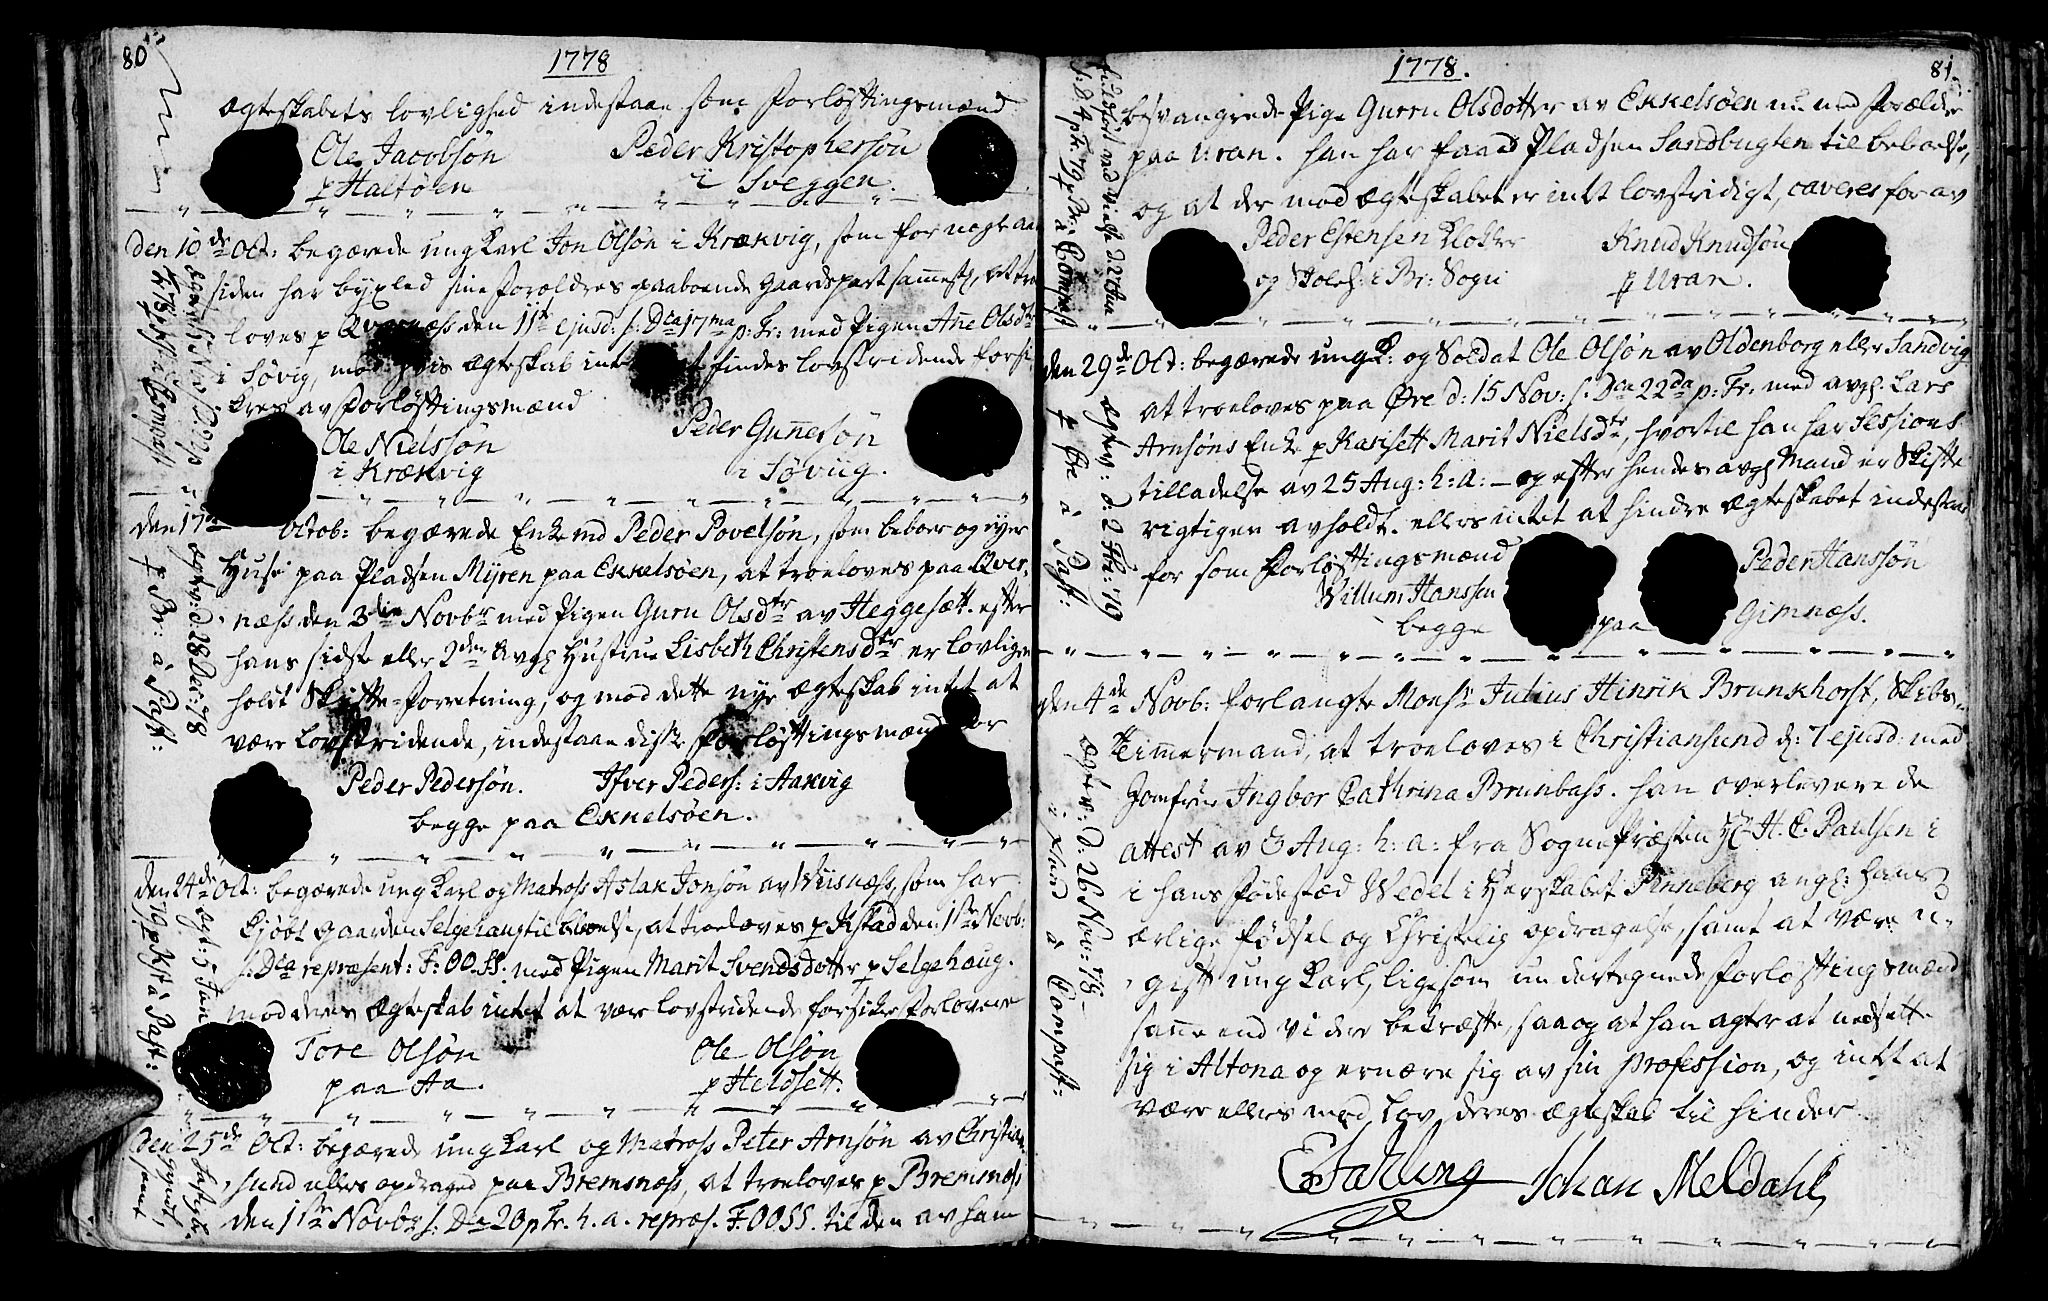 80
1778
Ægteskabets lovlighed indestaae som Forløftingsmænd
Ole Jacobsøn Peder Kristophersøn
p Haltøen i Sveggen.
Den 10de Oct: begærede ung Karl Jon Olsøn i Krækvig, som for nogle aar
siden har byxled sine Forældres paaboende Gaardspart sammest, at troe
loves p Qvernæss den 11te ejusd: s: Dca 17ma p: Tr: med Pigen Añe Olsdtr
i Søvig, mod hvis Ægteskab intet at findes lovstridende forsi
kres av Forløftingsmænd
Ole Nielssøn Peder Guñersøn
i Krækvig i Søviig.
Den 17de Octob: begærede Enkemd Peder Povelsøn, som beboer og ejer
Huse paa Pladsen Mÿren paa Ekkelsøen, at troeloves paa Qver-
næss den 3die Novbr med Pigen Guru Olsdtr av Heggesætt. efter
hans sidste eller 2den avg: Hustrue Lisbeth Christensdtr er lovligen
holdt Skifte-Forretning, og mod dette nye Ægteskab intet at
være Lovstridende, indestaae disse Forløftingsmænd for
Peder Pedersøn. Ifver Peders: i Aakvig
begge paa Ekkelsøen.
Den 24de Oct: begærede ung Karl og Matros Aslak Jonsøn av Wiisnæss, som har
Kjøbt Gaarden Selgehaug til beboelse, at troeloves p Kstad den 1ste Novb:
s: Dca repræsent: F: OO. SS. med Pigen Marit Svendsdotter p Selgehaug.
mod deres Ægteskab intet at være lovstridende forsikre Forlovere
Tore Olsøn Ole Olsøn
paa Aa. p Heldsett.
Den 25de Oct: begærede ung Karl og Matross Peter Arnsøn av Christian
sund ellers opdraged paa Bremsnæss, at troeloves p Bremsnæss
den 1ste Novbr s: Dca 20 p Tr. h. a. repræs. F. OO SS. til den av ham
1778.
81.
besvangrede Pige Gurru Olsdotter av Ekkelsøen nu med Forældre
paa Uran. han har faaed Pladsen Sandbugten til beboelse,
og at der mod Ægteskabet er intet lovstridigt, caveres for av
Peder Estensen Klokker Knud Knudsøn
og Skoleh: i Br: Sogn p Uran.
Den 29de Oct: begærede ungk: og Soldat Ole Olsøn av Oldenborg eller Sandvig
at troeloves paa Øre d: 15 Nov: s. Dca 22da p: Tr. med avg: Lars
Arnsøns Enke p Karisett Marit Nielsdtr, hvortil han har Sessions
tilladelse av 25 Aug: h: a: – og efter hendes avg Mand er Skifte
rigtigen avholdt. ellers intet at hindre Ægteskabet indestaae
for som Forløftingsmænd
Willum Hanssen Peder Hanssøn
begge paa Gimnæss.
Den 4de Novb: forlangte Monsr Julius Hinrik Brunkhorst, Skibs-
Timmermand, at troeloves i Christiansund d: 7 ejusd: med
Jomfrue Ingbor Cathrina Brunbass. han overleverede
attest av 3 Aug: h: a: fra Sognepræsten Hr H. C. Paulsen i
i hans Fødested Wedel i Herskabet Pinneberg ang: hans
ærlige Fødsel og Christelig opdragelse, samt at være u-
gift ung Karl, ligesom undertegnede Forløftingsmænd
sañe end videre bekræfte, saa og at han agter at nedsette
sig i Altona og ernære sig av sin Profession, og intet at
være ellers mod Lov, deres Ægteskab til hinder.
Johan Meldahl